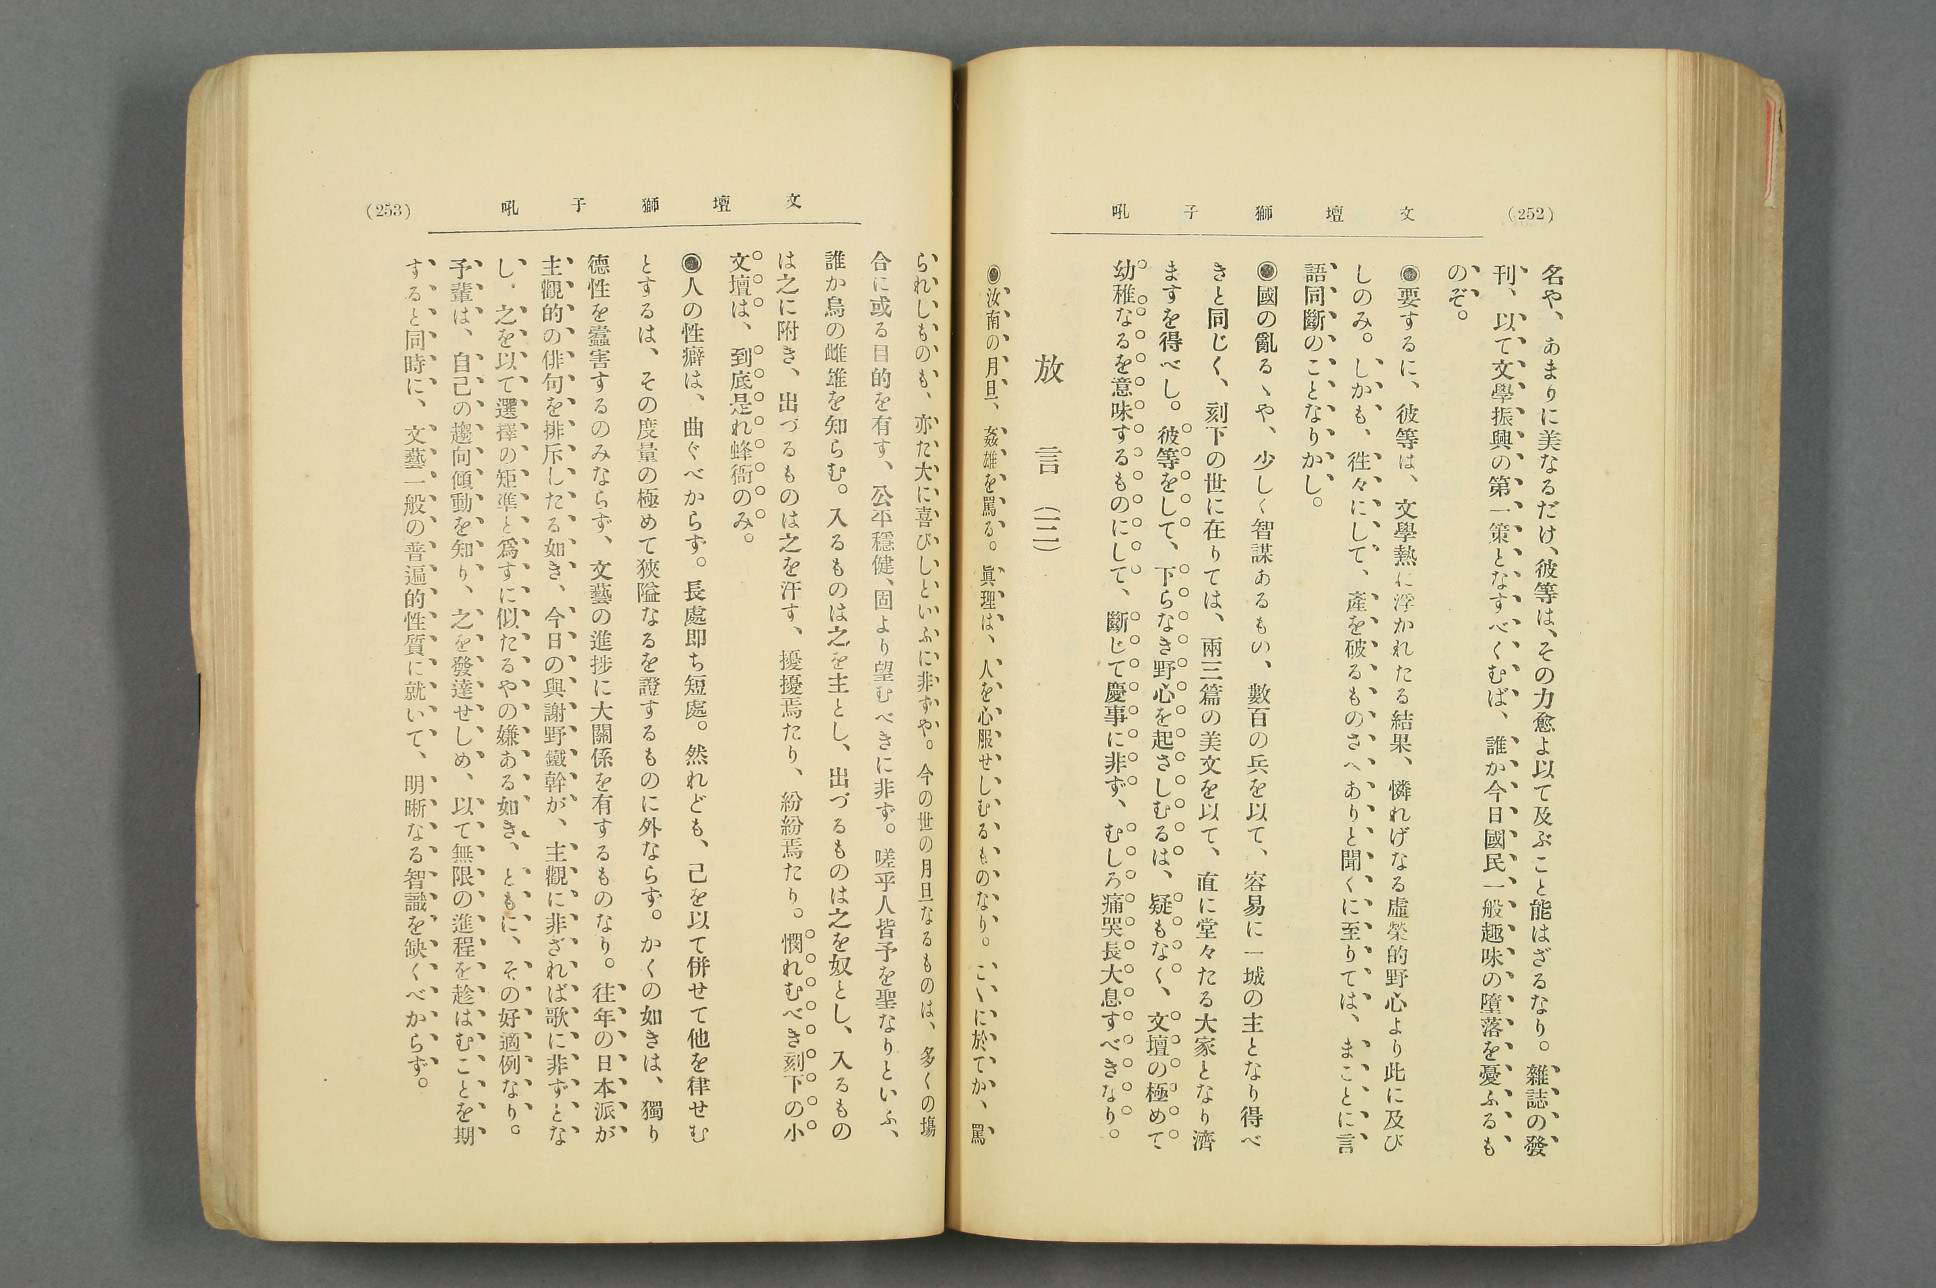 (252)
文壇獅子吼
名や、あまりに美なるだけ、彼等は、その力愈よ以て及ぶこと能はざるなり。雜誌の發
刊、以て文學振興の第一策となすべくむば、誰か今日國民一般趣味の墮落を憂ふるも
のぞ。
◉要するに、彼等は、文學熱に浮かれたる結果、憐れげなる虛榮的野心より此に及び
しのみ。しかも、徃々にして、產を破るものさへありと聞くに至りては、まことに言
語同斷のことなりかし。
◉國の亂るゝや、少しく智謀あるもの、數百の兵を以て、容易に一城の主となり得べ
きと同じく、刻下の世に在りては、兩三篇の美文を以て、直に堂々たる大家となり濟
ますを得べし。彼等をして、下らなき野心を起さしむるは、疑もなく、文壇の極めて
幼稚なるを意味するものにして、斷じて慶事に非ず、むしろ痛哭長大息すべきなり。
放言（三）
◉汝南の月旦、姦雄を罵る。眞理は、人を心服せしむるものなり。こゝに於てか、罵
(253)
文壇獅子吼
られしものも、亦た大に喜びしといふに非ずや。今の世の月旦なるものは、多くの塲
合に或る目的を有す、公平穩健、固より望むべきに非ず。嗟乎人皆予を聖なりといふ、
誰か烏の雌雄を知らむ。入るものは之を主とし、出づるものは之を奴とし、入るもの
は之に附き、出づるものは之を汗す、擾擾焉たり、紛紛焉たり。憫れむべき刻下の小
文壇は、到底是れ蜂衙のみ。
◉人の性癖は、曲ぐべからず。長處即ち短處。然れども、己を以て併せて他を律せむ
とするは、その度量の極めて狹隘なるを證するものに外ならず。かくの如きは、獨り
德性を蠧害するのみならず、文藝の進捗に大關係を有するものなり。往年の日本派が
主觀的の俳句を排斥したる如き、今日の與謝野鐵幹が、主觀に非ざれば歌に非ずとな
し、之を以て選擇の矩準と爲すに似たるやの嫌ある如き、ともに、その好適例なり。
予輩は、自己の趨向傾動を知り、之を發達せしめ、以て無限の進程を趁はむことを期
すると同時に、文藝一般の普遍的性質に就いて、明晰なる智識を缺くべからず。